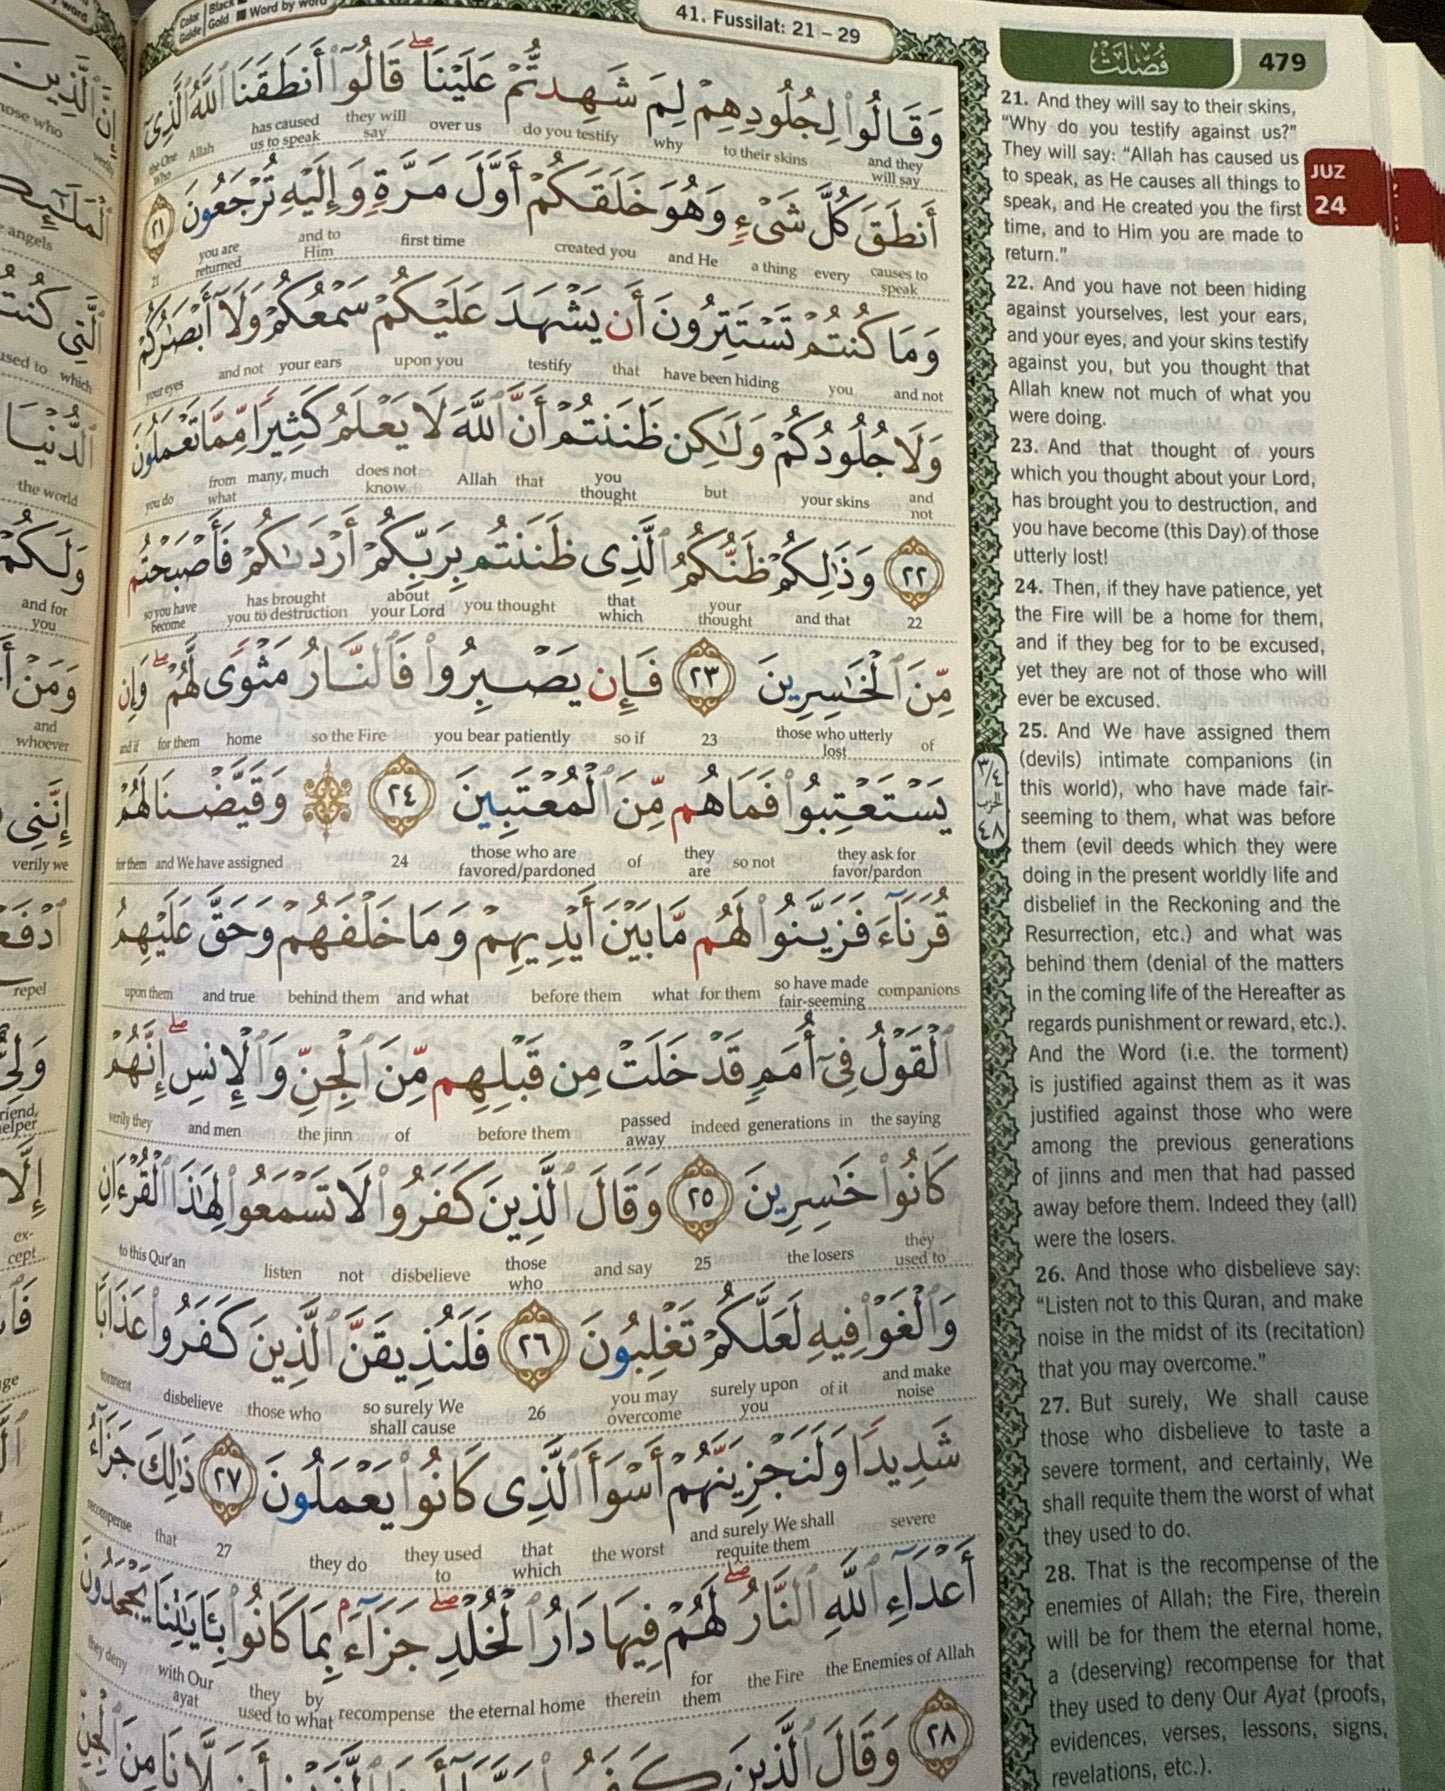 Color Guide
Black
Gold ■ Word by word
41. Fussilat: 21 – 29
فُصِّلَتْ
479
JUZ
24
وَقَالُوا۟ لِجُلُودِهِمْ لِمَ شَهِدتُّمْ عَلَيْنَا ۖ قَالُوٓا۟ أَنطَقَنَا ٱللَّهُ ٱلَّذِىٓ
and they will say to their skins why do you testify over us they will say has caused us to speak Allah the One Who
أَنطَقَ كُلَّ شَىْءٍ وَهُوَ خَلَقَكُمْ أَوَّلَ مَرَّةٍ وَإِلَيْهِ تُرْجَعُونَ ٢١
causes to speak every a thing and He created you first time and to Him you are returned 21
وَمَا كُنتُمْ تَسْتَتِرُونَ أَن يَشْهَدَ عَلَيْكُمْ سَمْعُكُمْ وَلَآ أَبْصَٰرُكُمْ
and not you have been hiding that testify upon you your ears and not your eyes
وَلَا جُلُودُكُمْ وَلَٰكِن ظَنَنتُمْ أَنَّ ٱللَّهَ لَا يَعْلَمُ كَثِيرًا مِّمَّا تَعْمَلُونَ
and not your skins but you thought that Allah does not know many, much from what you do
٢٢ وَذَٰلِكُمْ ظَنُّكُمُ ٱلَّذِى ظَنَنتُم بِرَبِّكُمْ أَرْدَىٰكُمْ فَأَصْبَحْتُم
22 and that your thought that which you thought about your Lord has brought you to destruction so you have become
مِّنَ ٱلْخَٰسِرِينَ ٢٣ فَإِن يَصْبِرُوا۟ فَٱلنَّارُ مَثْوًى لَّهُمْ ۖ وَإِن
of those who utterly lost 23 so if you bear patiently so the Fire home for them and if
يَسْتَعْتِبُوا۟ فَمَا هُم مِّنَ ٱلْمُعْتَبِينَ ٢٤ ۞ وَقَيَّضْنَا لَهُمْ
they ask for favor/pardon so not they are of those who are favored/pardoned 24 and We have assigned for them
قُرَنَآءَ فَزَيَّنُوا۟ لَهُم مَّا بَيْنَ أَيْدِيهِمْ وَمَا خَلْفَهُمْ وَحَقَّ عَلَيْهِمُ
companions so have made fair-seeming for them what before them and what behind them and true upon them
ٱلْقَوْلُ فِىٓ أُمَمٍ قَدْ خَلَتْ مِن قَبْلِهِم مِّنَ ٱلْجِنِّ وَٱلْإِنسِ ۖ إِنَّهُمْ
the saying in generations indeed passed away before them of the jinn and men verily they
كَانُوا۟ خَٰسِرِينَ ٢٥ وَقَالَ ٱلَّذِينَ كَفَرُوا۟ لَا تَسْمَعُوا۟ لِهَٰذَا ٱلْقُرْءَانِ
they used to the losers 25 and say those who disbelieve not listen to this Qur'an
وَٱلْغَوْا۟ فِيهِ لَعَلَّكُمْ تَغْلِبُونَ ٢٦ فَلَنُذِيقَنَّ ٱلَّذِينَ كَفَرُوا۟ عَذَابًا
and make noise of it surely upon you you may overcome 26 so surely We shall cause those who disbelieve torment
شَدِيدًا وَلَنَجْزِيَنَّهُمْ أَسْوَأَ ٱلَّذِى كَانُوا۟ يَعْمَلُونَ ٢٧ ذَٰلِكَ جَزَآءُ
severe and surely We shall requite them the worst that which they used to they do 27 that recompense
أَعْدَآءِ ٱللَّهِ ٱلنَّارُ ۖ لَهُمْ فِيهَا دَارُ ٱلْخُلْدِ ۖ جَزَآءًۢ بِمَا كَانُوا۟ بِـَٔايَٰتِنَا يَجْحَدُونَ
the Enemies of Allah the Fire for them therein the eternal home recompense by what they used to with Our ayat they deny
٢٨ وَقَالَ ٱلَّذِينَ
٣/٤
الحزب
٤٨
21. And they will say to their skins,
“Why do you testify against us?”
They will say: “Allah has caused us
to speak, as He causes all things to
speak, and He created you the first
time, and to Him you are made to
return.”
22. And you have not been hiding
against yourselves, lest your ears,
and your eyes, and your skins testify
against you, but you thought that
Allah knew not much of what you
were doing.
23. And that thought of yours
which you thought about your Lord,
has brought you to destruction, and
you have become (this Day) of those
utterly lost!
24. Then, if they have patience, yet
the Fire will be a home for them,
and if they beg for to be excused,
yet they are not of those who will
ever be excused.
25. And We have assigned them
(devils) intimate companions (in
this world), who have made fair-
seeming to them, what was before
them (evil deeds which they were
doing in the present worldly life and
disbelief in the Reckoning and the
Resurrection, etc.) and what was
behind them (denial of the matters
in the coming life of the Hereafter as
regards punishment or reward, etc.).
And the Word (i.e. the torment)
is justified against them as it was
justified against those who were
among the previous generations
of jinns and men that had passed
away before them. Indeed they (all)
were the losers.
26. And those who disbelieve say:
“Listen not to this Quran, and make
noise in the midst of its (recitation)
that you may overcome.”
27. But surely, We shall cause
those who disbelieve to taste a
severe torment, and certainly, We
shall requite them the worst of what
they used to do.
28. That is the recompense of the
enemies of Allah; the Fire, therein
will be for them the eternal home,
a (deserving) recompense for that
they used to deny Our Ayat (proofs,
evidences, verses, lessons, signs,
revelations, etc.).